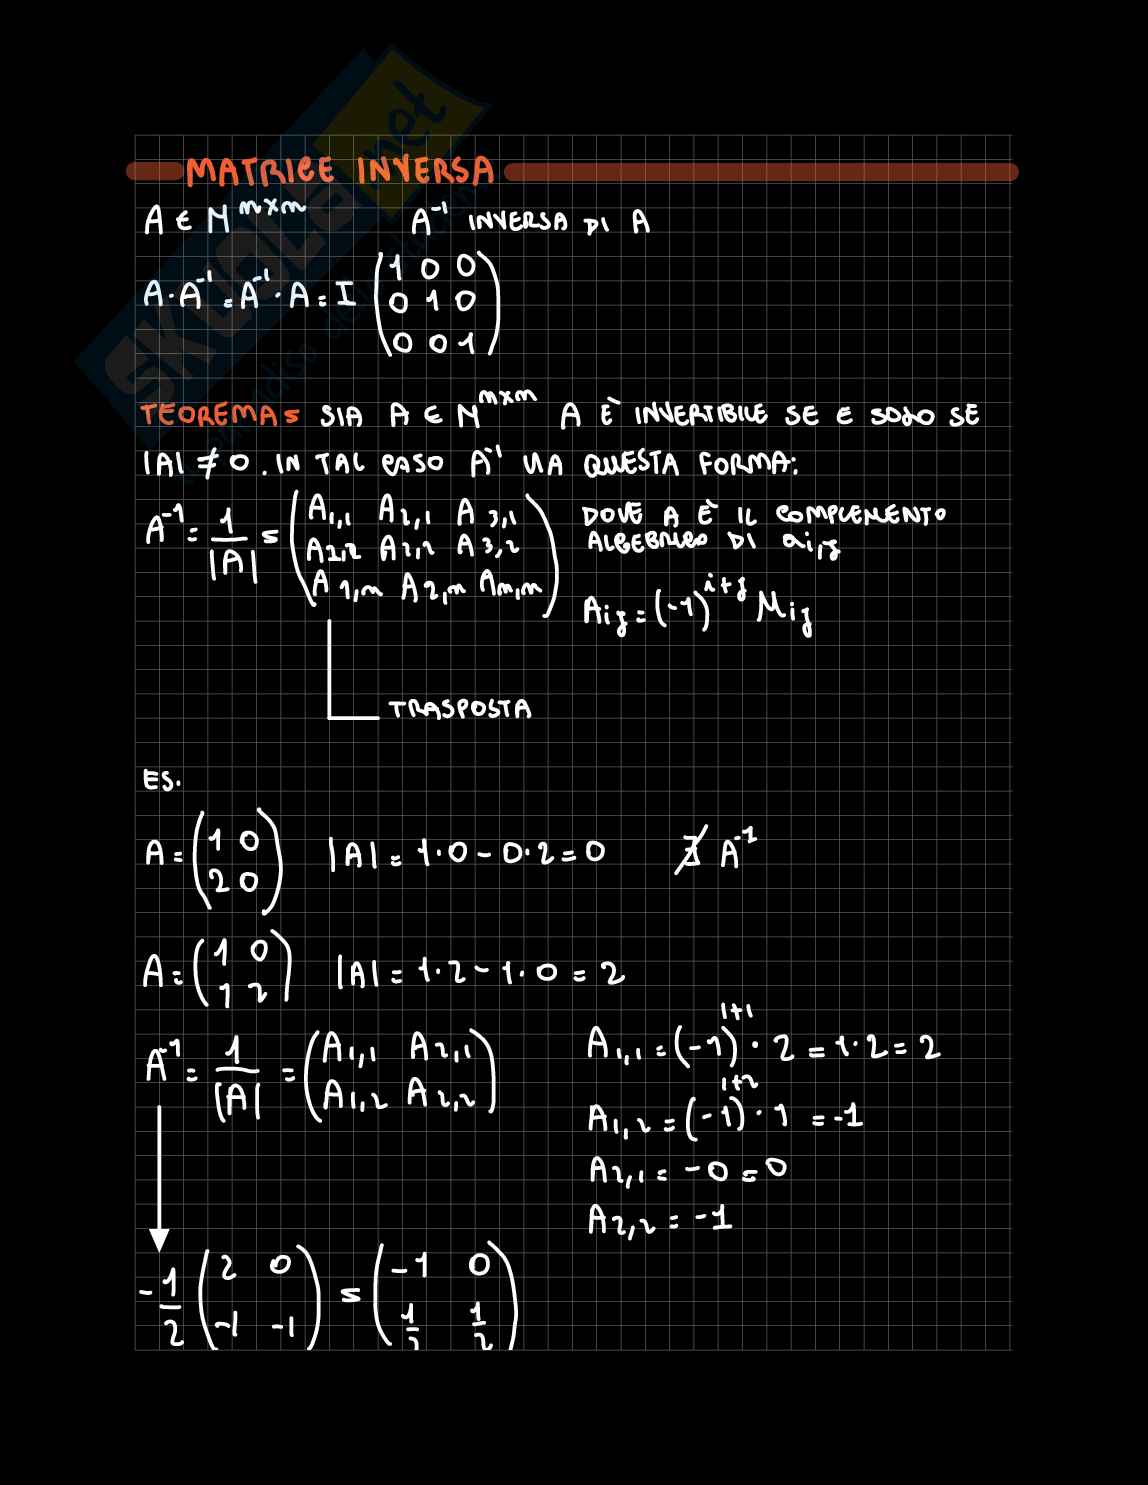 MATRICE INVERSA
A ∈ M^m×m A⁻¹ INVERSA DI A
A·A⁻¹ = A⁻¹·A = I (1 0 0
0 1 0
0 0 1)
TEOREMA: SIA A ∈ M^m×m A È INVERTIBILE SE E SOLO SE
|A| ≠ 0. IN TAL CASO A⁻¹ HA QUESTA FORMA:
A⁻¹ = 1/|A| = (A1,1 A2,1 A3,1
A2,2 A2,2 A3,2
A1,m A2,m Am,m)
DOVE A È IL COMPLEMENTO
ALGEBRICO DI ai,j
Aij = (-1)^i+j Mij
TRASPOSTA
ES.
A = (1 0
2 0) |A| = 1·0 - 0·2 = 0 ∄ A⁻¹
A = (1 0
1 2) |A| = 1·2 - 1·0 = 2
A⁻¹ = 1/|A| = (A1,1 A2,1
A1,2 A2,2)
A1,1 = (-1)^1+1 · 2 = 1·2 = 2
A1,2 = (-1)^1+2 · 1 = -1
A2,1 = -0 = 0
A2,2 = -1
-1/2 (2 0
-1 -1) = (-1 0
1/2 1/2)
SKUOLA.net